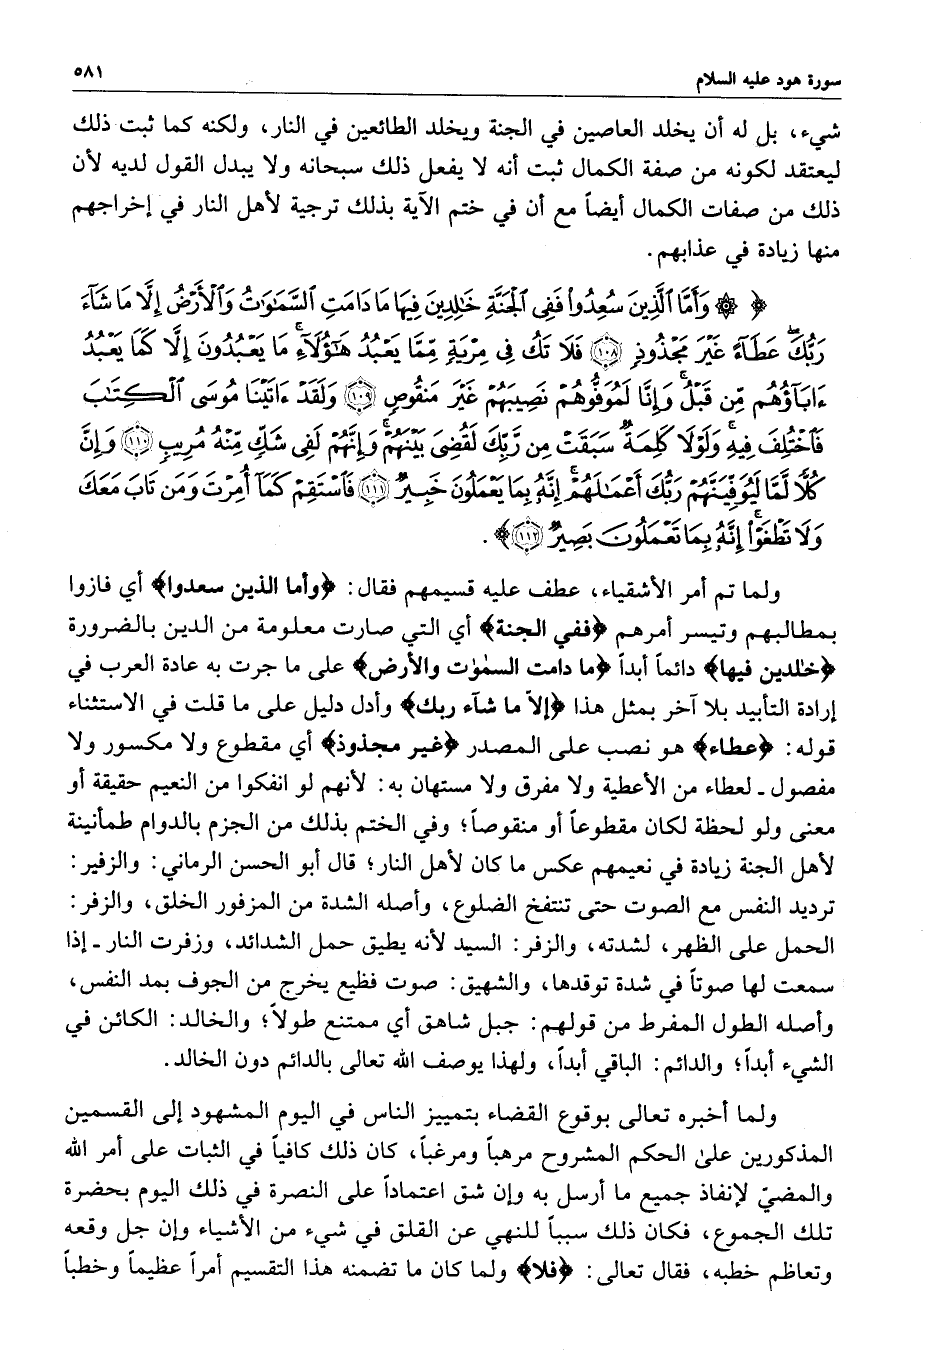 سورة هود عليه السلام ٥٨١
شيء، بل له أن يخلد العاصين في الجنة ويخلد الطائعين في النار، ولكنه كما ثبت ذلك
ليعتقد لكونه من صفة الكمال ثبت أنه لا يفعل ذلك سبحانه ولا يبدل القول لديه لأن
ذلك من صفات الكمال أيضاً مع أن في ختم الآية بذلك ترجية لأهل النار في إخراجهم
منها زيادة في عذابهم.
﴿ ۞ وَأَمَّا ٱلَّذِينَ سُعِدُوا۟ فَفِى ٱلْجَنَّةِ خَٰلِدِينَ فِيهَا مَا دَامَتِ ٱلسَّمَٰوَٰتُ وَٱلْأَرْضُ إِلَّا مَا شَآءَ
رَبُّكَ ۖ عَطَآءً غَيْرَ مَجْذُوذٍ ﴿١٠٨﴾ فَلَا تَكُ فِى مِرْيَةٍ مِّمَّا يَعْبُدُ هَٰٓؤُلَآءِ ۚ مَا يَعْبُدُونَ إِلَّا كَمَا يَعْبُدُ
ءَابَآؤُهُم مِّن قَبْلُ ۚ وَإِنَّا لَمُوَفُّوهُمْ نَصِيبَهُمْ غَيْرَ مَنقُوصٍ ﴿١٠٩﴾ وَلَقَدْ ءَاتَيْنَا مُوسَى ٱلْكِتَٰبَ
فَٱخْتُلِفَ فِيهِ ۚ وَلَوْلَا كَلِمَةٌ سَبَقَتْ مِن رَّبِّكَ لَقُضِىَ بَيْنَهُمْ ۚ وَإِنَّهُمْ لَفِى شَكٍّ مِّنْهُ مُرِيبٍ ﴿١١٠﴾ وَإِنَّ
كُلًّا لَّمَّا لَيُوَفِّيَنَّهُمْ رَبُّكَ أَعْمَٰلَهُمْ ۚ إِنَّهُۥ بِمَا يَعْمَلُونَ خَبِيرٌ ﴿١١١﴾ فَٱسْتَقِمْ كَمَآ أُمِرْتَ وَمَن تَابَ مَعَكَ
وَلَا تَطْغَوْا۟ ۚ إِنَّهُۥ بِمَا تَعْمَلُونَ بَصِيرٌ ﴿١١٢﴾ ﴾.
ولما تم أمر الأشقياء، عطف عليه قسيمهم فقال: ﴿وأما الذين سعدوا﴾ أي فازوا
بمطالبهم وتيسر أمرهم ﴿ففي الجنة﴾ أي التي صارت معلومة من الدين بالضرورة
﴿خٰلدين فيها﴾ دائماً أبداً ﴿ما دامت السمٰوٰت والأرض﴾ على ما جرت به عادة العرب في
إرادة التأبيد بلا آخر بمثل هذا ﴿إلا ما شآء ربك﴾ وأدل دليل على ما قلت في الاستثناء
قوله: ﴿عطاء﴾ هو نصب على المصدر ﴿غير مجذوذ﴾ أي مقطوع ولا مكسور ولا
مفصول ـ لعطاء من الأعطية ولا مفرق ولا مستهان به: لأنهم لو انفكوا من النعيم حقيقة أو
معنى ولو لحظة لكان مقطوعاً أو منقوصاً؛ وفي الختم بذلك من الجزم بالدوام طمأنينة
لأهل الجنة زيادة في نعيمهم عكس ما كان لأهل النار؛ قال أبو الحسن الرماني: والزفير:
ترديد النفس مع الصوت حتى تنتفخ الضلوع، وأصله الشدة من المزفور الخلق، والزفر:
الحمل على الظهر، لشدته، والزفر: السيد لأنه يطيق حمل الشدائد، وزفرت النار ـ إذا
سمعت لها صوتاً في شدة توقدها، والشهيق: صوت فظيع يخرج من الجوف بمد النفس،
وأصله الطول المفرط من قولهم: جبل شاهق أي ممتنع طولاً؛ والخالد: الكائن في
الشيء أبداً؛ والدائم: الباقي أبداً، ولهذا يوصف الله تعالى بالدائم دون الخالد.
ولما أخبره تعالى بوقوع القضاء بتمييز الناس في اليوم المشهود إلى القسمين
المذكورين على الحكم المشروح مرهباً ومرغباً، كان ذلك كافياً في الثبات على أمر الله
والمضيّ لإنفاذ جميع ما أرسل به وإن شق اعتماداً على النصرة في ذلك اليوم بحضرة
تلك الجموع، فكان ذلك سبباً للنهي عن القلق في شيء من الأشياء وإن جل وقعه
وتعاظم خطبه، فقال تعالى: ﴿فلا﴾ ولما كان ما تضمنه هذا التقسيم أمراً عظيماً وخطباً